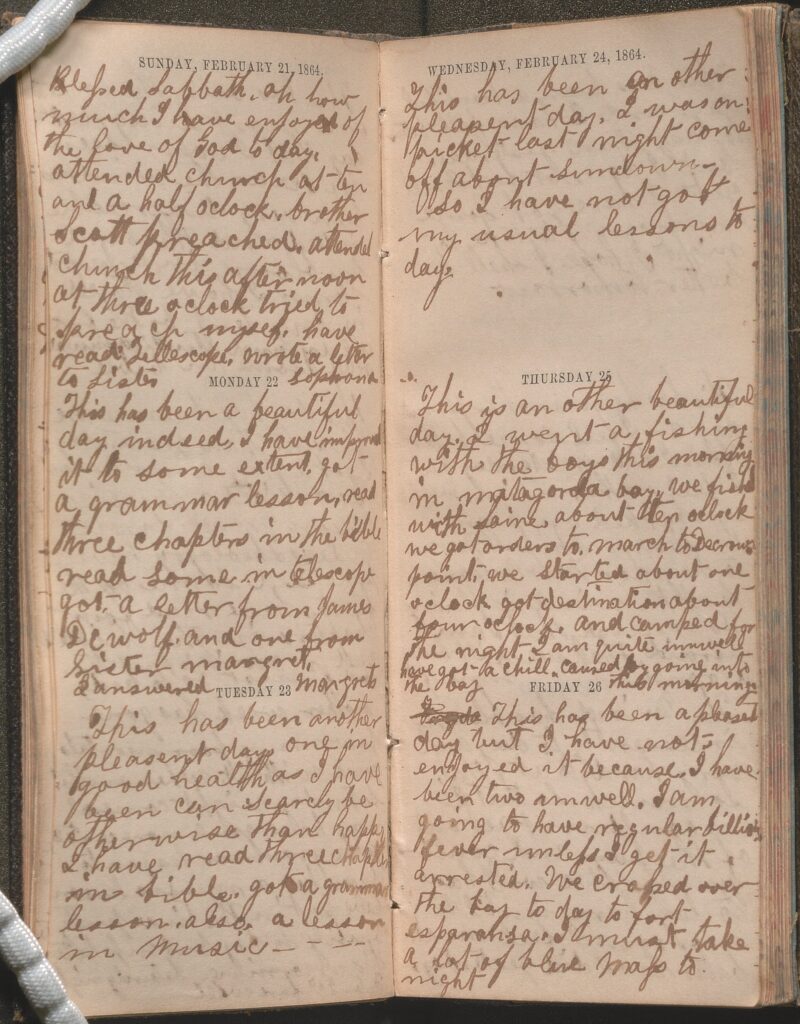 SUNDAY, FEBRUARY 21, 1864.
Blessed Sabbath, oh how
much I have enjoyed of
the love of God to day,
attended church at ten
and a half oclock, brother
Scott preached, attended
church this afternoon
at three oclock tried to
preach myself, have
read Tellescope, wrote a letter
to Sister Sophrona
MONDAY 22
This has been a beautiful
day indeed, I have improved
it to some extent, got
a grammar lesson, read
three chapters in the bible
read some in telescope
got a letter from James
Dewolf and one from
Sister margret,
I answered Margrets
TUESDAY 23
This has been another
pleasent day, one in
good health as I have
been can scarcely be
otherwise than happy
I have read three chapters
in bible, got a grammar
lesson, also, a lesson
in music - - -
WEDNESDAY, FEBRUARY 24, 1864.
This has been an other
pleasent day, I was on
picket last night come
off about sundown
So I have not got
my usual lessons to
day.
THURSDAY 25
This is an other beautiful
day, I went a fishing
with the boys this morning
in matagorda bay, we fish
with saine about ten oclock
we got orders to march to Decrows
point, we started about one
oclock got destination about
four oclock, and camped for
the night, I am quite unwell
have got a chill, caused by going into
the bay this morning
FRIDAY 26
This has been a pleasent
day but I have not
enjoyed it because, I have
been two unwell, I am
going to have regular billious
fever unless I get it
arrested, We crossed over
the bay to day to fort
esparansa, I must take
a lot of blue mass to
night